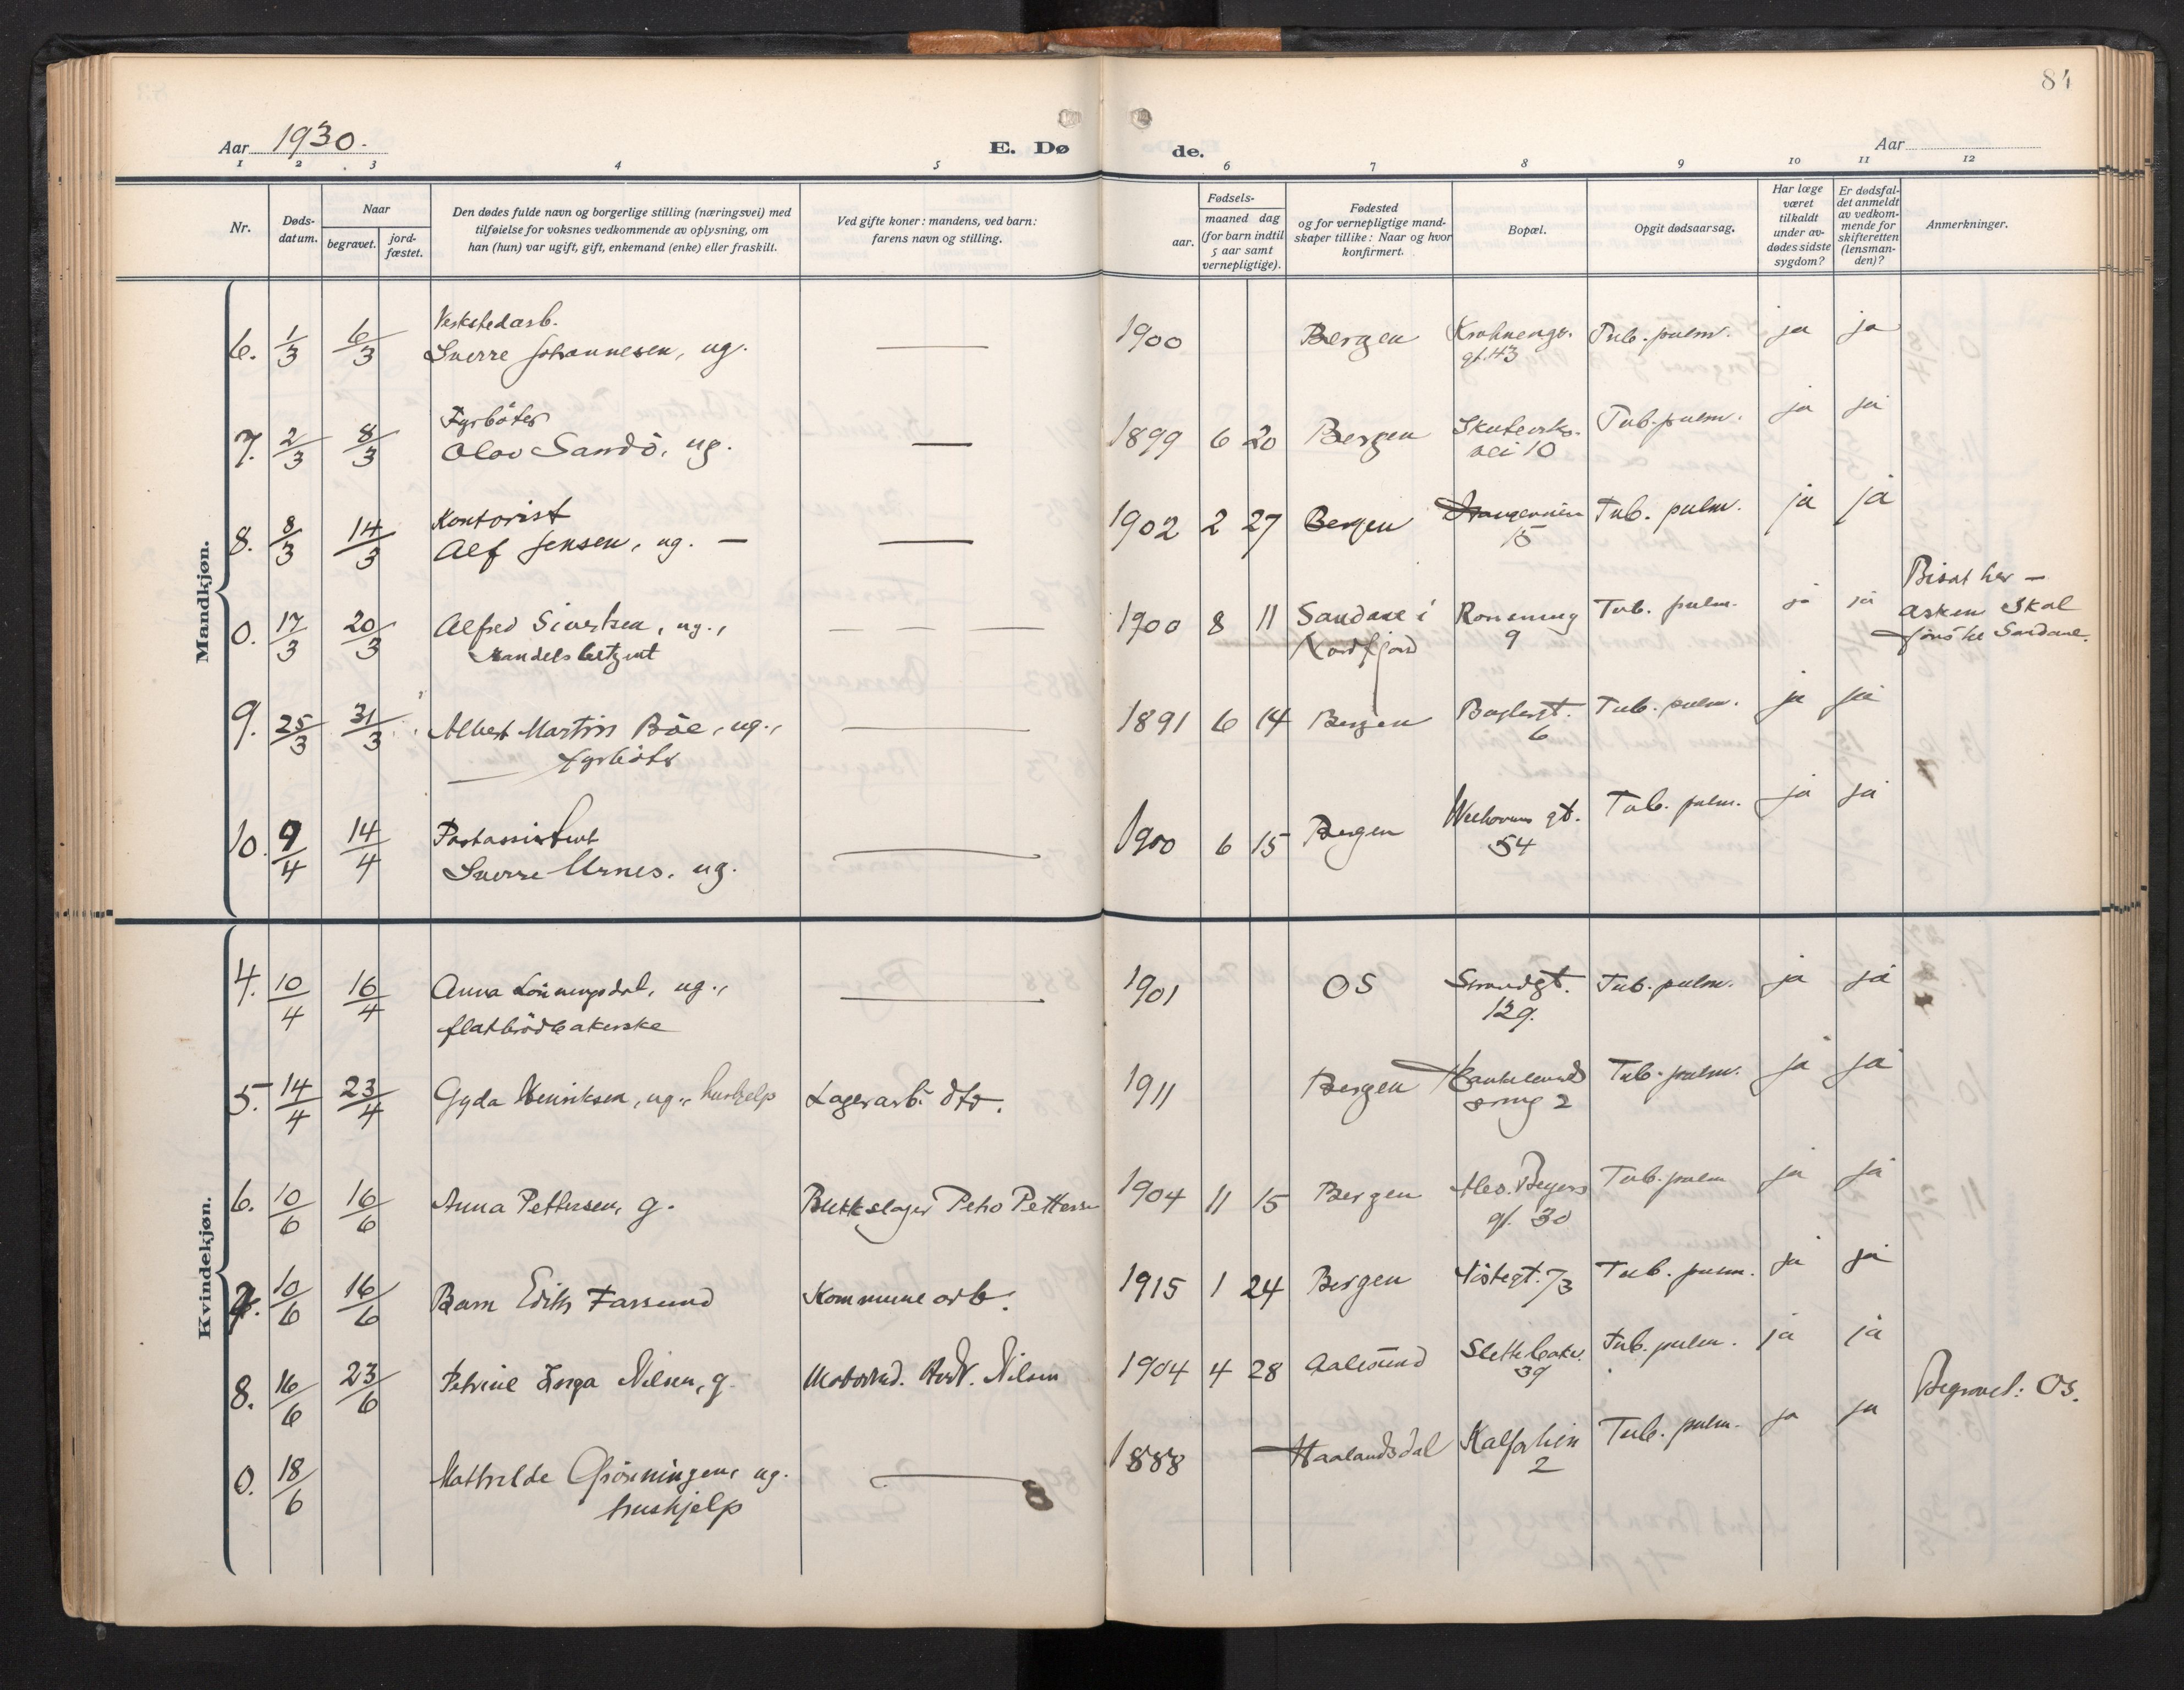 84
Aar 1930.
E. Døde.
Aar
1 2 3 4 5 6 7 8 9 10 11 12
Nr.
Døds-
datum.
Naar
begravet.
jord-
fæstet.
Den dødes fulde navn og borgerlige stilling (næringsvei) med
tilføielse for voksnes vedkommende av oplysning, om
han (hun) var ugift, gift, enkemand (enke) eller fraskilt.
Ved gifte koner: mandens, ved barn:
farens navn og stilling.
Fødsels-
aar.
maaned dag
(for barn indtil
5 aar samt
vernepligtige).
Fødested
og for vernepligtige mand-
skaper tillike: Naar og hvor
konfirmert.
Bopæl.
Opgit dødsaarsag.
Har læge
været
tilkaldt
under av-
dødes sidste
sygdom?
Er dødsfal-
det anmeldt
av vedkom-
mende for
skifteretten
(lensman-
den)?
Anmerkninger.
Mandkjøn.
Verkstedarb.
6. 1/3 6/3 Sverre Johannesen, ug. — 1900 Bergen Krohnengs. Tub. pulm. ja ja
gt. 43
Fyrböter
7. 2/3 8/3 Olav Sandö, ug. — 1899 6 20 Bergen Skuteviks. Tub. pulm. ja ja
vei 10
Kontorist
8. 8/3 14/3 Alf Jensen, ug. — — 1902 2 27 Bergen Tub. pulm. ja ja
15
Bisat her —
0. 17/3 20/3 Alfred Sivertsen, ug., — — — 1900 8 11 Sandane i 9 Tub. pulm. ja ja Asken skal
handelsbetjent Nordfjord Sandane.
9. 25/3 31/3 Albert Martin Böe, ug., — 1891 6 14 Bergen Baglergt. Tub. pulm. ja ja
fyrböter 6
Postassistent
10. 9/4 14/4 Sverre Urnes. ug. — 1900 6 15 Bergen gt. Tub. pulm. ja ja
54
Kvindekjøn.
4. 10/4 16/4 Anna Lönningdal, ug., — 1901 OS Strandgt. Tub. pulm. ja ja
flatbrödbakerske 129.
5. 14/4 23/4 Gyda Henriksen, ug., hushjelp Lagerarb. dtr. 1911 Bergen Haukelands Tub. pulm. ja ja
2
6. 10/6 16/6 Anna Pettersen, g. Blikkslager Petter 1904 11 15 Bergen Abs. Beyers Tub. pulm ja ja
gt. 30
7. 10/6 16/6 Barn Edith Farsund Kommunearb. 1915 1 24 Bergen Nöstegt. 73 Tub. pulm. ja ja
8. 16/6 23/6 Petrine Inga Nilsen, g. Nilsen 1904 4 28 Aalesund Slettebakv. Tub. pulm. ja ja
39
Begravet: Os.
0. 18/6 Mathilde Grönningen, ug. — 1888 Haalandsdal Kalfarlien Tub. pulm. ja ja
hushjelp 2